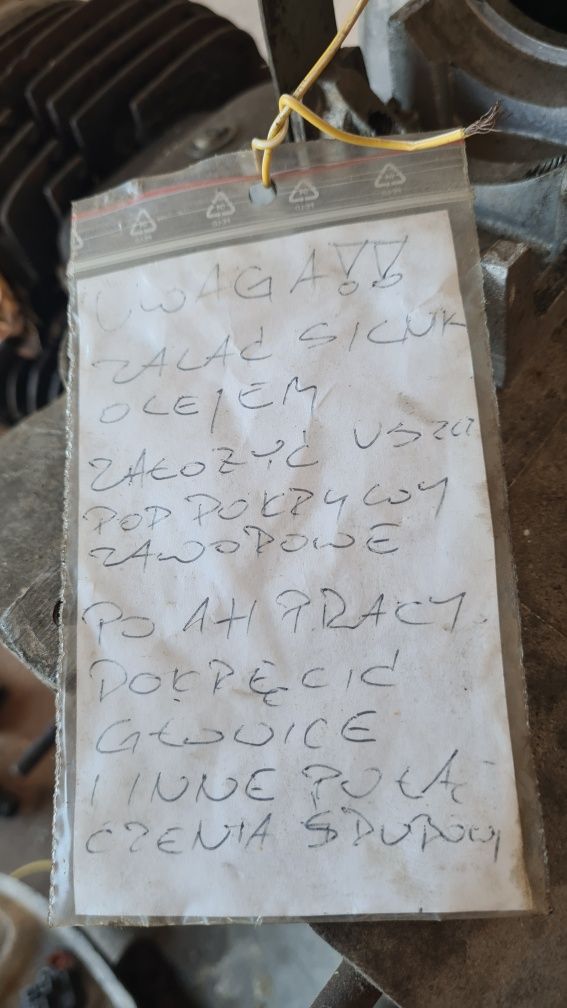 UWAGA!!
ZALAĆ SILNIK
OLEJEM
ZAŁOŻYĆ USZCZ
POD POKRYWY
ZAWOROWE
PO 1H PRACY
DOKRĘCIĆ
GŁOWICE
I INNE POŁĄ
CZENIA ŚRUBOWY